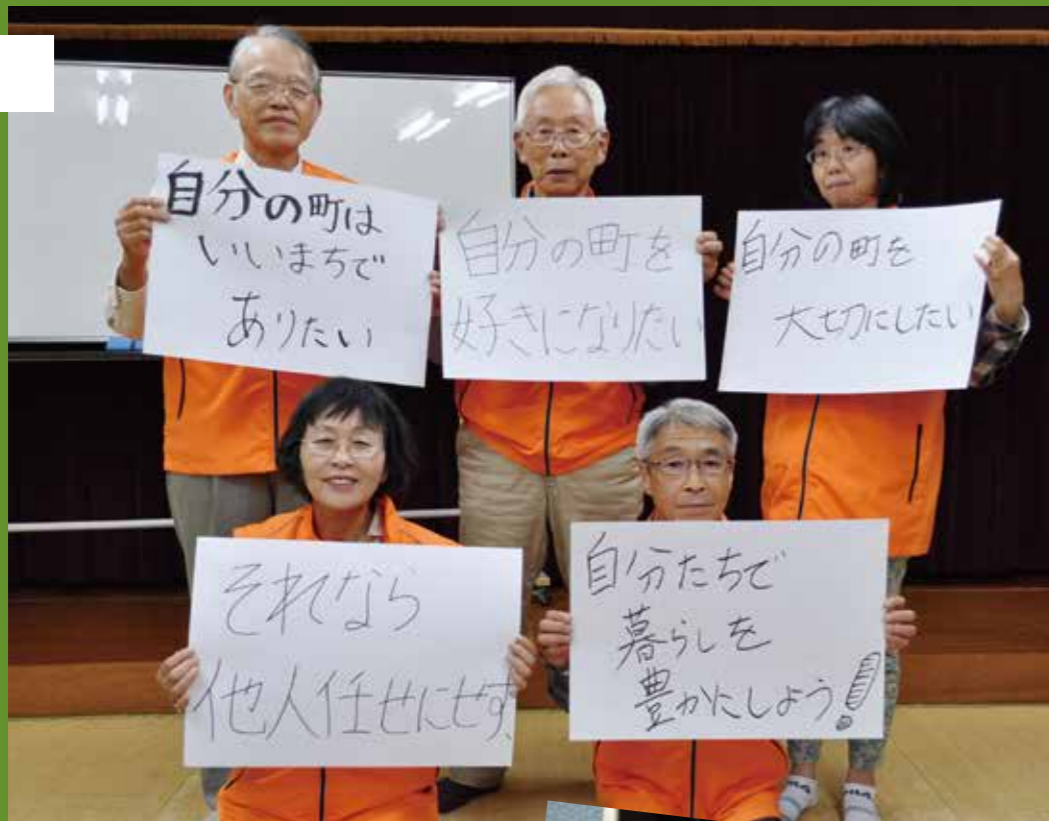 自分の町は
いいまちで
ありたい
自分の町を
好きになりたい
自分の町を
大切にしたい
それなら
他人任せにせず、
自分たちで
暮らしを
豊かにしよう!